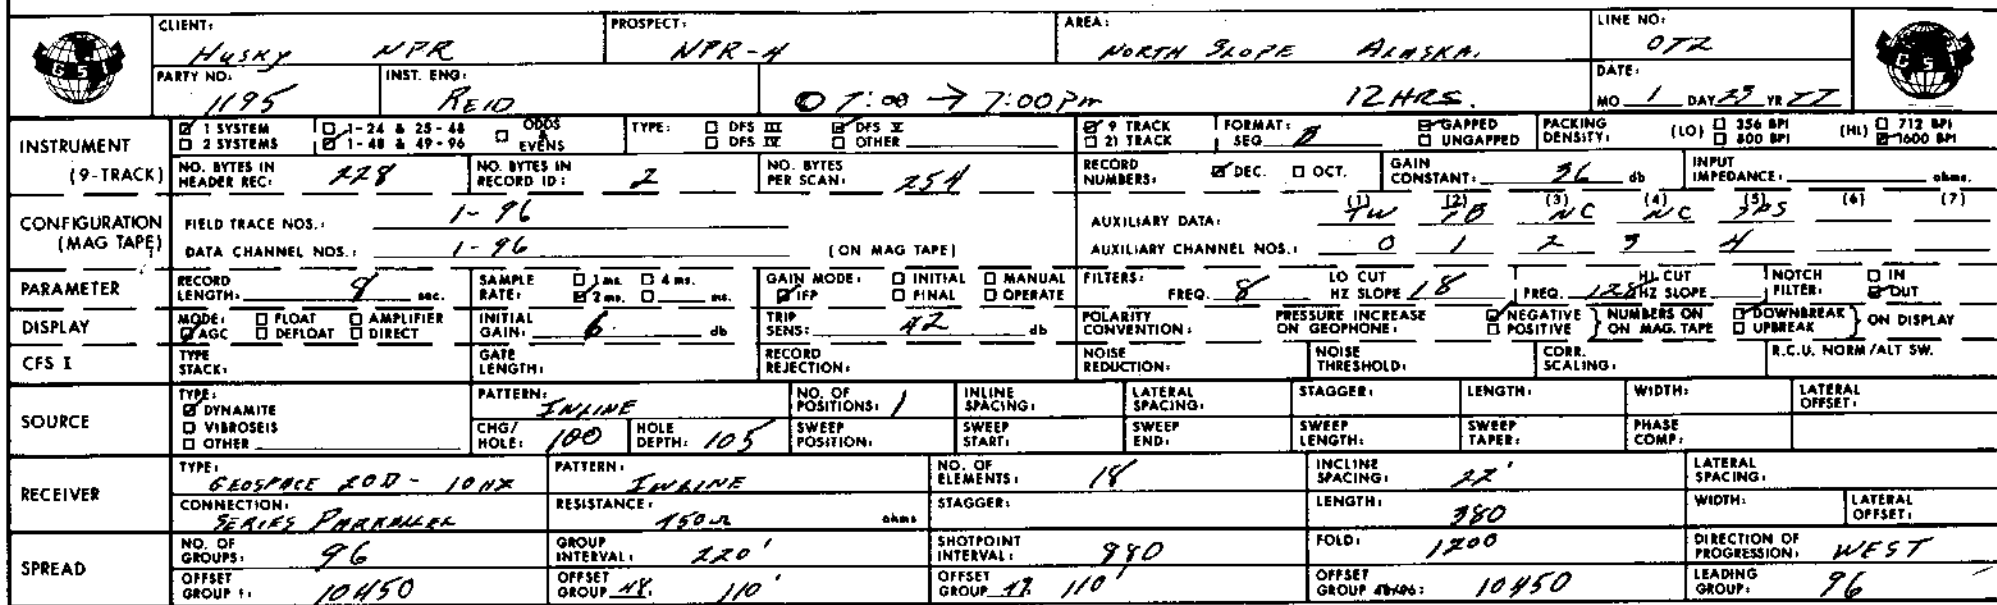 CLIENT: PROSPECT: AREA: LINE NO:
HUSKY NPR NPR-4 NORTH SLOPE ALASKA. OTZ
GSI GSI
PARTY NO: INST. ENG: DATE:
1195 REID 7:00 → 7:00 PM 12 HRS. MO 1 DAY YR 77
INSTRUMENT ☑ 1 SYSTEM ☐ 1-24 & 25-48 ☐ ODDS & EVENS TYPE: ☐ DFS III ☑ DFS V ☑ 9 TRACK FORMAT: ☑ GAPPED PACKING DENSITY: (LO) ☐ 356 BPI (HI) ☐ 712 BPI
☐ 2 SYSTEMS ☑ 1-48 & 49-96 ☐ DFS IV ☐ OTHER ☐ 21 TRACK SEG B ☐ UNGAPPED ☐ 800 BPI ☑ 1600 BPI
(9-TRACK) NO. BYTES IN HEADER REC: 228 NO. BYTES IN RECORD ID: 2 NO. BYTES PER SCAN: 254 RECORD NUMBERS: ☑ DEC. ☐ OCT. GAIN CONSTANT: 36 db INPUT IMPEDANCE: ohms.
CONFIGURATION FIELD TRACE NOS.: 1-96 AUXILIARY DATA: (1) TW (2) TB (3) NC (4) NC (5) (6) (7)
(MAG TAPE) DATA CHANNEL NOS.: 1-96 (ON MAG TAPE) AUXILIARY CHANNEL NOS.: 0 1 2 3 4
PARAMETER RECORD LENGTH: 8 sec. SAMPLE RATE: ☐ 1 ms. ☐ 4 ms. ☑ 2 ms. ☐ ms. GAIN MODE: ☐ INITIAL ☐ MANUAL ☑ IFP ☐ FINAL ☐ OPERATE FILTERS: FREQ. 8 LO CUT HZ SLOPE 18 FREQ. 128 HI CUT HZ SLOPE NOTCH FILTER: ☐ IN ☑ OUT
DISPLAY MODE: ☐ FLOAT ☐ AMPLIFIER ☑ AGC ☐ DEFLOAT ☐ DIRECT INITIAL GAIN: 6 db TRIP SENS: 42 db POLARITY CONVENTION: PRESSURE INCREASE ON GEOPHONE: ☑ NEGATIVE ☐ POSITIVE } NUMBERS ON ON MAG. TAPE ☑ DOWNBREAK ☐ UPBREAK } ON DISPLAY
CFS I TYPE STACK: GATE LENGTH: RECORD REJECTION: NOISE REDUCTION: NOISE THRESHOLD: CORR. SCALING: R.C.U. NORM/ALT SW.
SOURCE TYPE: ☑ DYNAMITE ☐ VIBROSEIS ☐ OTHER PATTERN: INLINE NO. OF POSITIONS: 1 INLINE SPACING: LATERAL SPACING: STAGGER: LENGTH: WIDTH: LATERAL OFFSET:
CHG/HOLE: 100 HOLE DEPTH: 105 SWEEP POSITION: SWEEP START: SWEEP END: SWEEP LENGTH: SWEEP TAPER: PHASE COMP:
RECEIVER TYPE: GEOSPACE 20D - 10 HZ PATTERN: INLINE NO. OF ELEMENTS: 18 INCLINE SPACING: 22' LATERAL SPACING:
CONNECTION: SERIES PARRALLEL RESISTANCE: 450Ω ohms STAGGER: LENGTH: 380 WIDTH: LATERAL OFFSET:
SPREAD NO. OF GROUPS: 96 GROUP INTERVAL: 220' SHOTPOINT INTERVAL: 880 FOLD: 1200 DIRECTION OF PROGRESSION: WEST
OFFSET GROUP 1: 10450 OFFSET GROUP 48: 110' OFFSET GROUP 110' OFFSET GROUP 10450 LEADING GROUP: 96